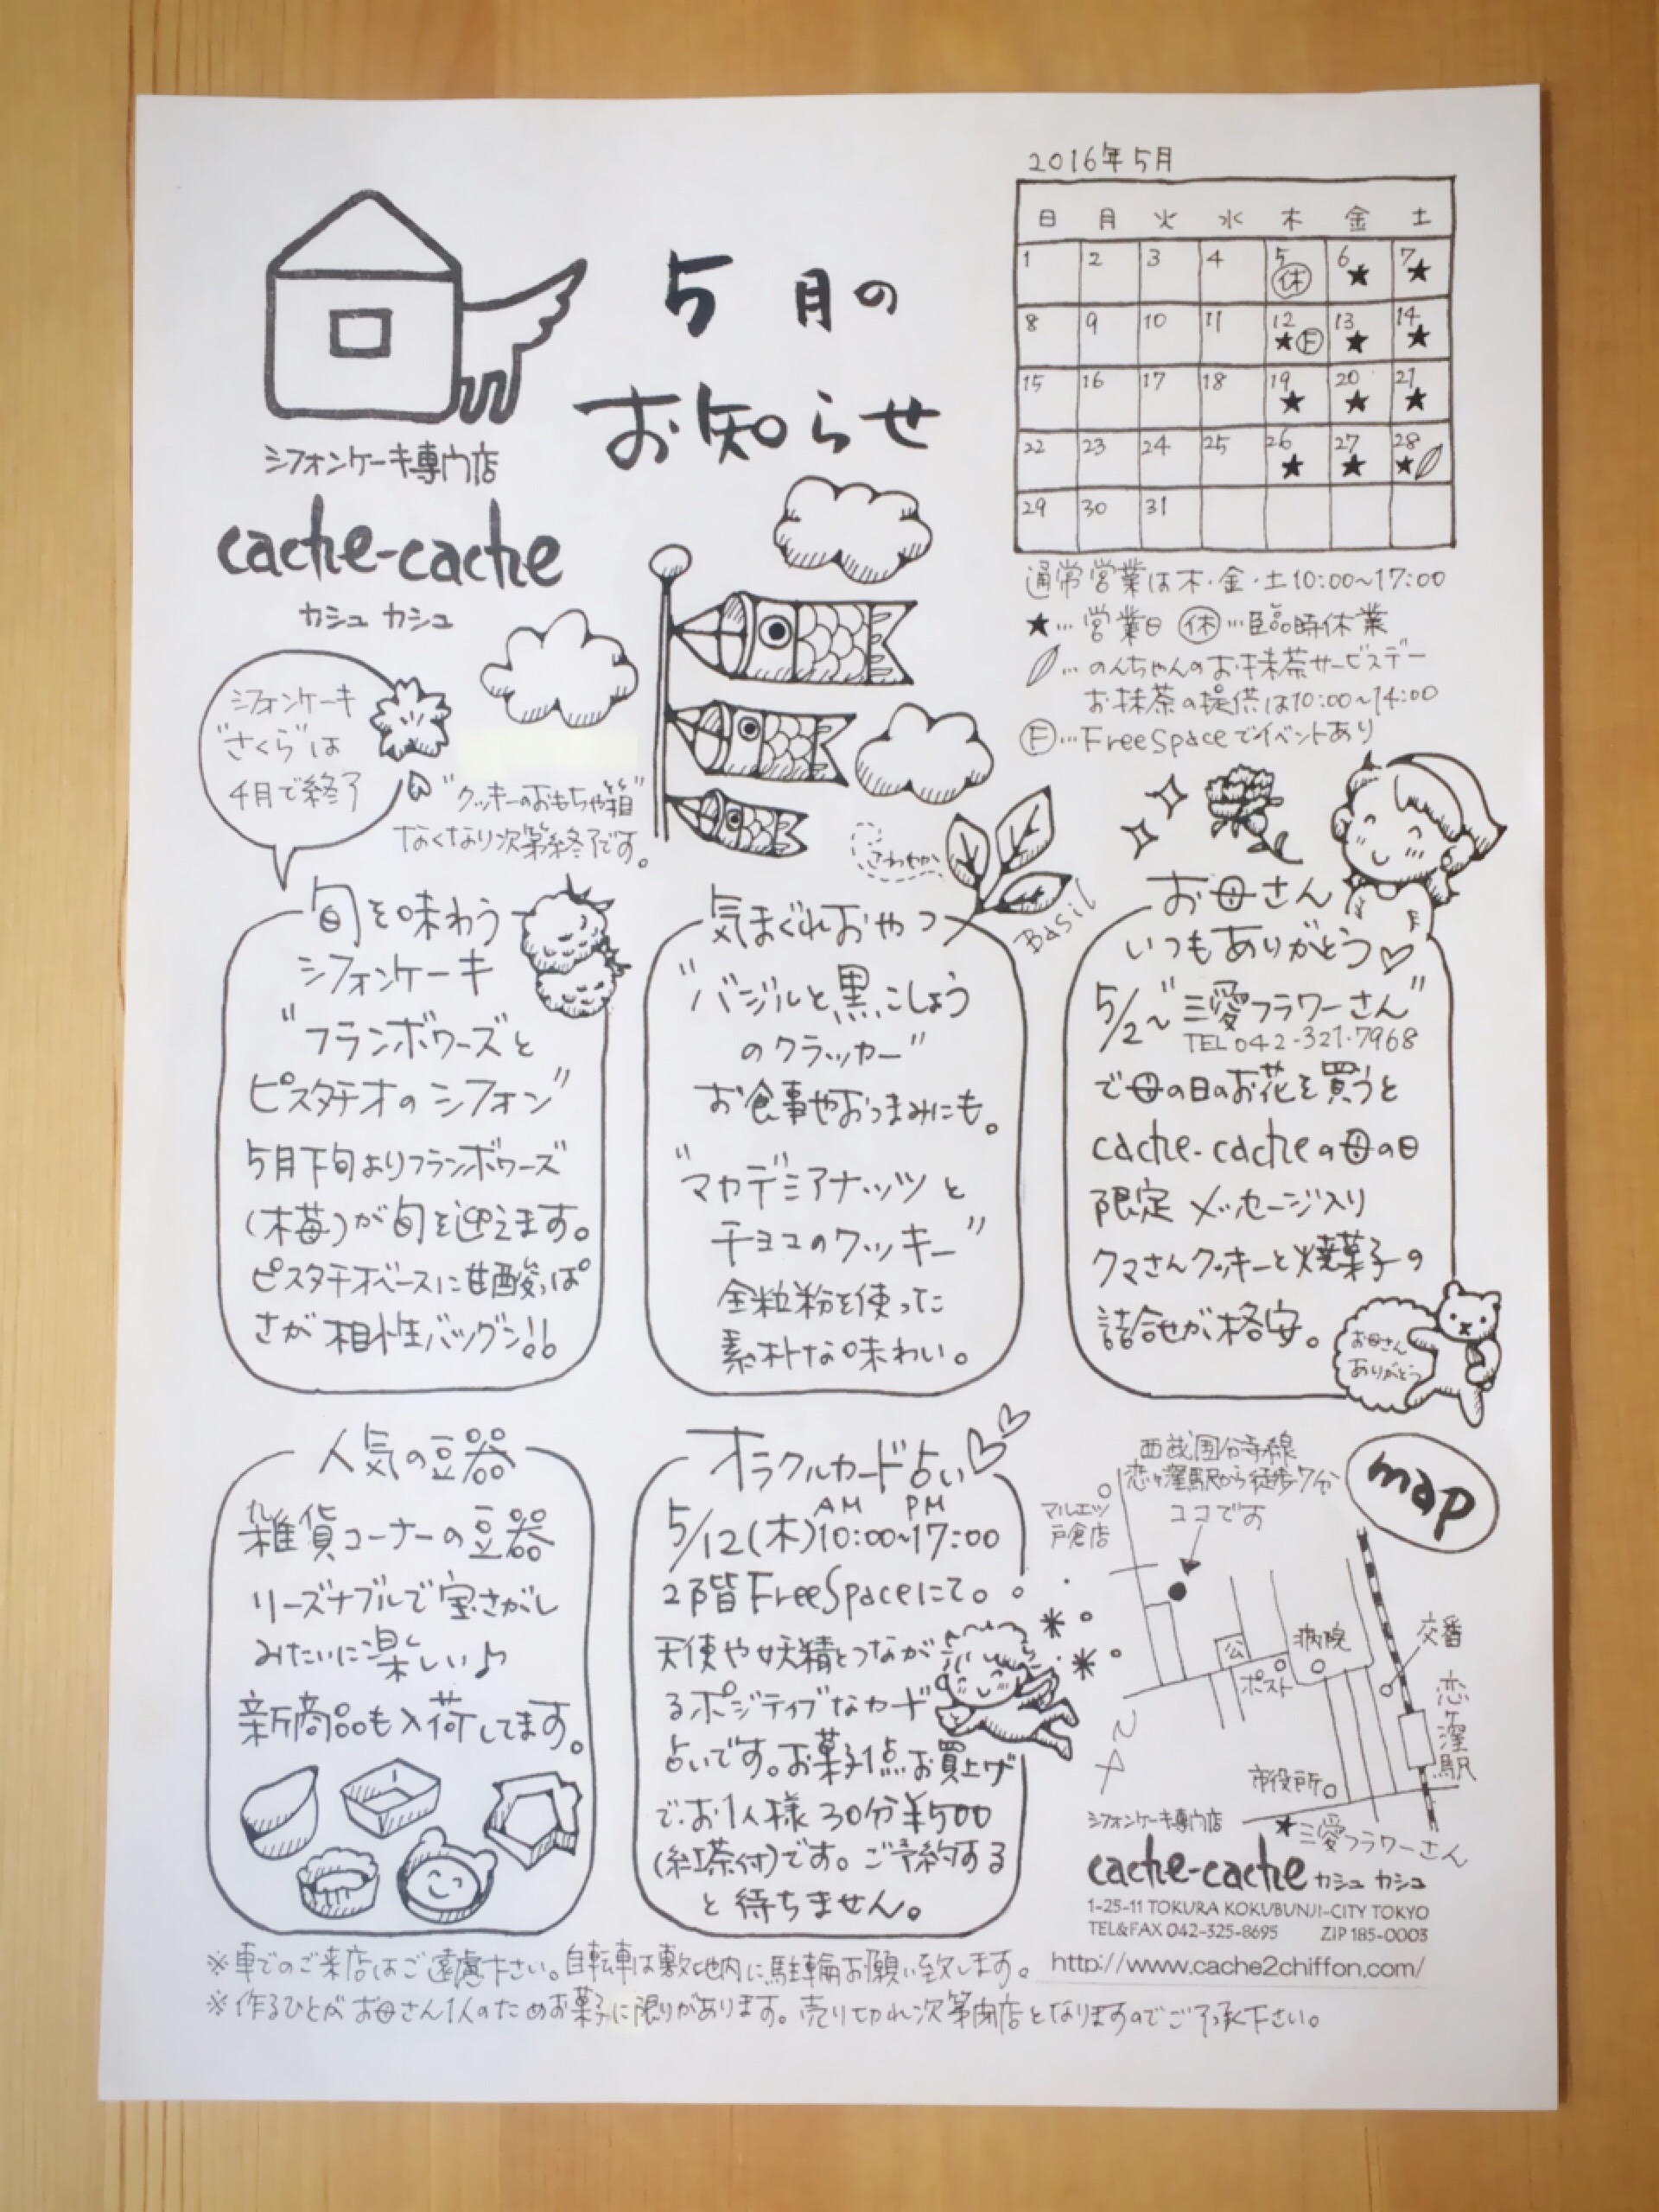 2016年5月
日 月 火 水 木 金 土
1 2 3 4 5 休 6 ★ 7 ★
8 9 10 11 12 ★ F 13 ★ 14 ★
15 16 17 18 19 ★ 20 ★ 21 ★
22 23 24 25 26 ★ 27 ★ 28 ★
29 30 31
通常営業は木・金・土10:00~17:00
★…営業日 休…臨時休業
…のんちゃんのお抹茶サービスデー
お抹茶の提供は10:00~14:00
F…FreeSpaceでイベントあり
5月の
お知らせ
シフォンケーキ専門店
cache-cache
カシュ カシュ
シフォンケーキ
"さくら"は
4月で終了
"クッキーのおもちゃ箱"
なくなり次第終了です。
さわやか
Basil
旬を味わう
シフォンケーキ
"フランボワーズと
ピスタチオのシフォン"
5月下旬よりフランボワーズ
(木苺)が旬を迎えます。
ピスタチオベースに甘酸っぱ
さが相性バツグン!!
気まぐれおやつ
"バジルと黒こしょう
のクラッカー"
お食事やおつまみにも。
"マカデミアナッツと
チョコのクッキー"
全粒粉を使った
素朴な味わい。
お母さん
いつもありがとう♡
5/2~"三愛フラワーさん"
TEL 042-321-7968
で母の日のお花を買うと
cache-cacheの母の日
限定 メッセージ入り
クマさんクッキーと焼菓子の
詰合せが格安。
お母さん
ありがとう
人気の豆器
雑貨コーナーの豆器
リーズナブルで宝さがし
みたいに楽しい♪
新商品も入荷してます。
オラクルカード占い
AM PM
5/12(木)10:00~17:00
2階FreeSpaceにて。
天使や妖精とつなが
るポジティブなカード
占いです。お菓子1点お買上げ
で、お1人様30分¥500
(紅茶付)です。ご予約する
と待ちません。
map
西武国分寺線
恋ヶ窪駅から徒歩7分
ココです
マルエツ
戸倉店
交番
病院
公
ポスト
恋ヶ窪駅
市役所
★三愛フラワーさん
シフォンケーキ専門店
cache-cache カシュ カシュ
1-25-11 TOKURA KOKUBUNJI-CITY TOKYO
TEL&FAX 042-325-8695 ZIP 185-0003
http://www.cache2chiffon.com/
※車でのご来店はご遠慮下さい。自転車は敷地内に駐輪お願い致します。
※作るひとがお母さん1人のためお菓子に限りがあります。売り切れ次第閉店となりますのでご了承下さい。